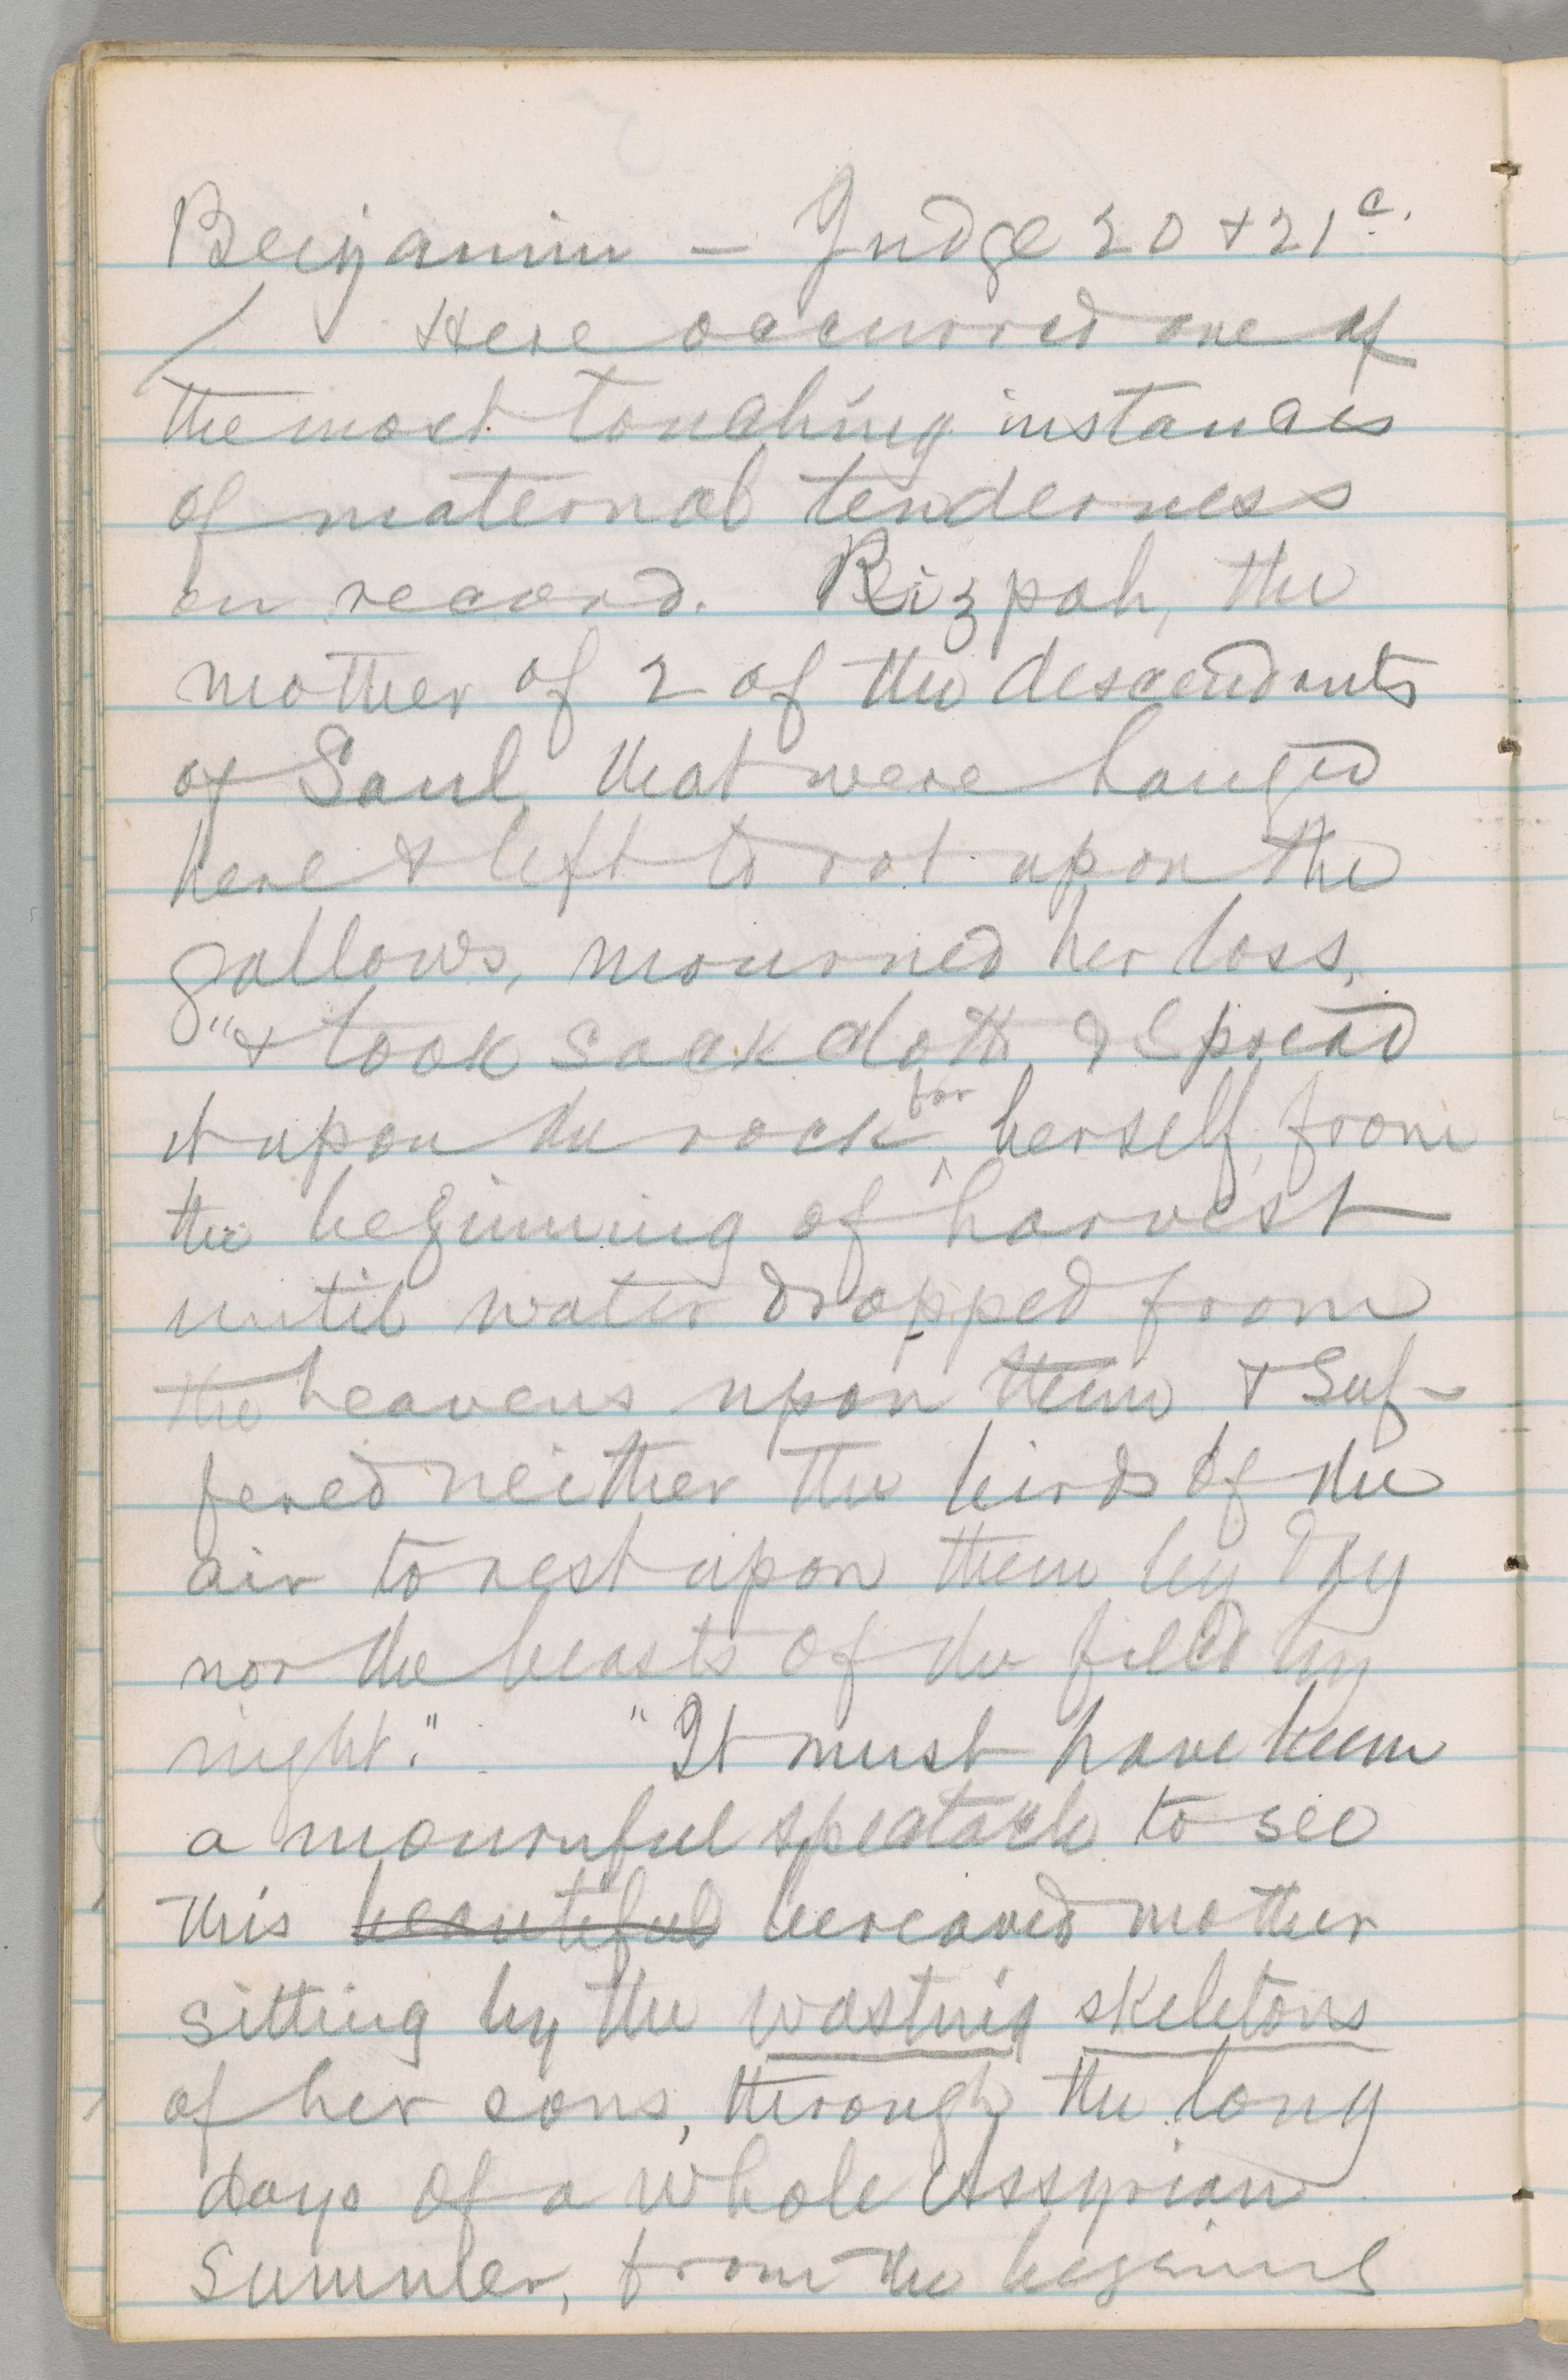 Benjamin — Judge 20 + 21 c.
Here occurred one of
the most touching instances
of maternal tenderness
on record. Rizpah, the
mother of 2 of the descendants
of Saul, that were hanged
here & left to rot upon the
gallows, mourned her loss,
"& took sackcloth & spread
it upon the rock for herself, from
the beginning of harvest
until water dropped from
the heavens upon them & suf-
fered neither the birds of the
air to rest upon them by day
nor the beasts of the field by
night." "It must have been
a mournful spectacle to see
this beautiful bereaved mother
sitting by the wasting skeletons
of her sons, through the long
days of a whole Assyrian
summer, from the beginning